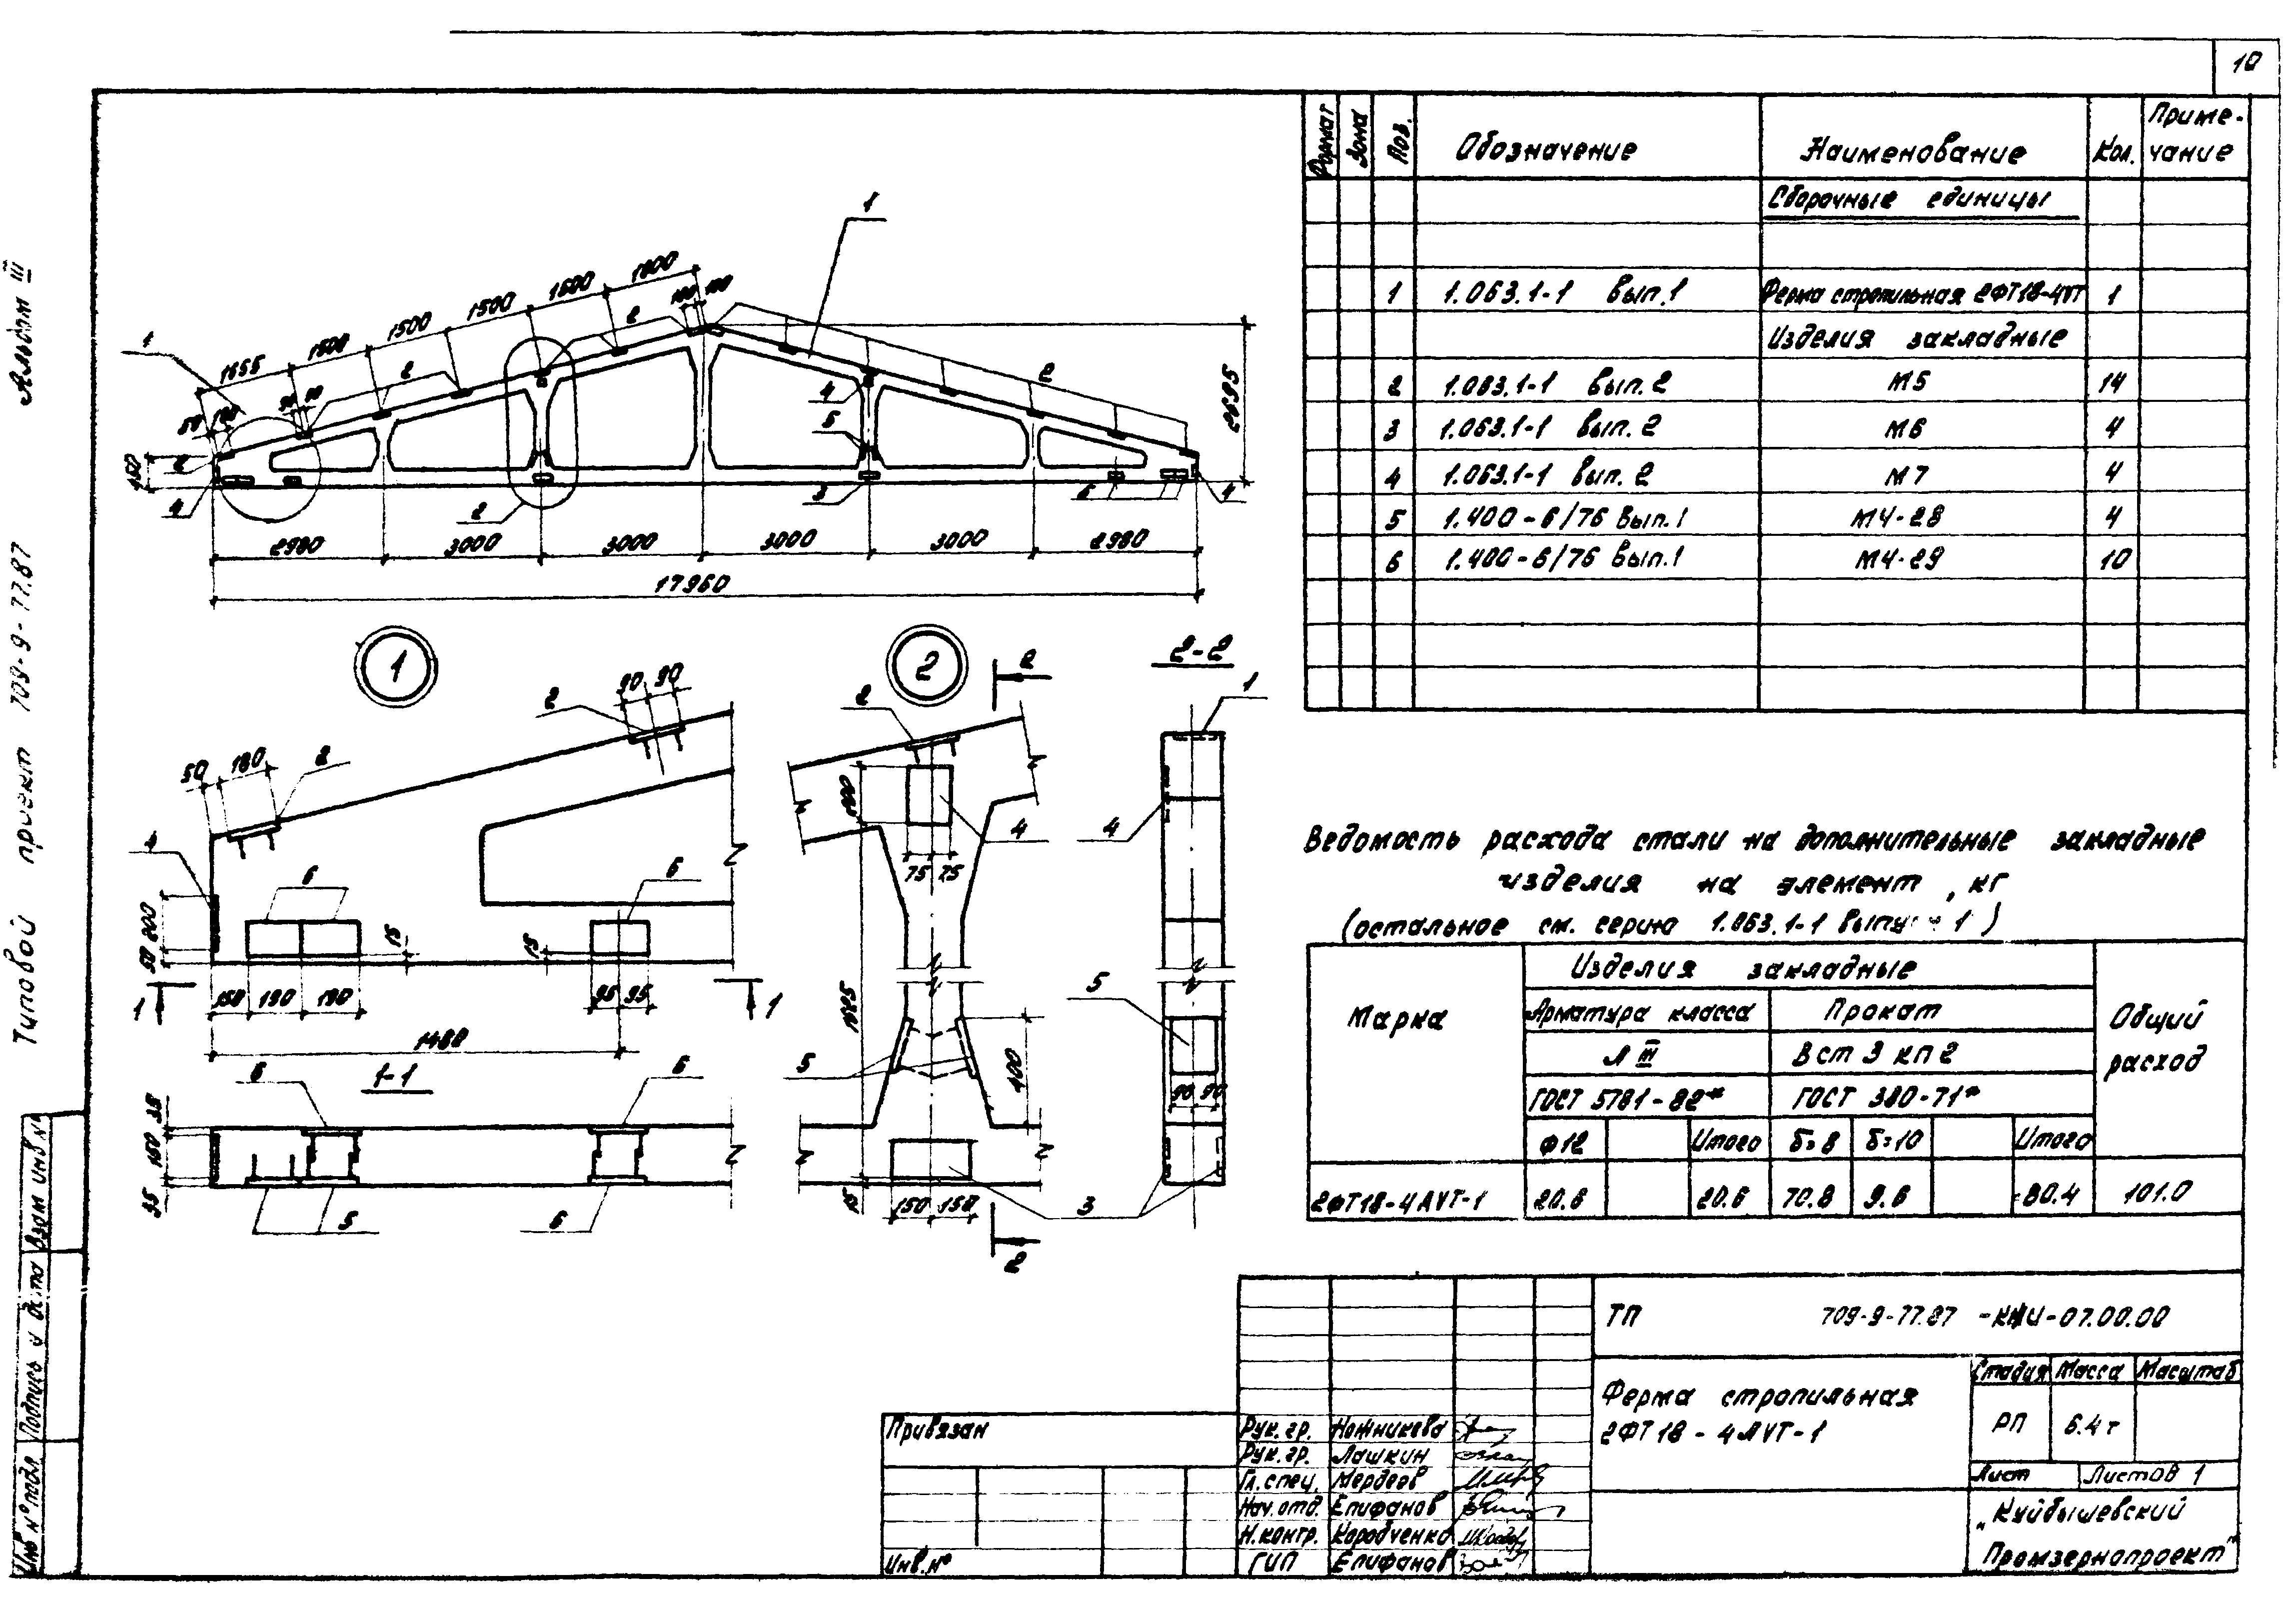 10
Альбом III
Типовой проект 709-9-77.87
Инв № подл
Подпись и дата
Взам инв №
Формат
Зона
Поз.
Обозначение
Наименование
Кол.
Приме-
чание
Сборочные единицы
1 1.063.1-1 Вып.1 Ферма стропильная 2ФТ18-4VТ 1
Изделия закладные
2 1.063.1-1 вып. 2 М5 14
3 1.063.1-1 вып. 2 М6 4
4 1.063.1-1 вып. 2 М7 4
5 1.400-6/76 Вып.1 М4-28 4
6 1.400-6/76 Вып.1 М4-29 10
1
1655 1500 1500 1500 1500 1800
100 100
50 180
90 90
1
2
2
2
2
4
5
3
4
2
6
4
2695
2980 3000 3000 3000 3000 2980
17960
1
2
2-2
50 180
2
2
90 90
4
6
6
50 200
15
15
150 190 190
95 95
1480
1
1
1-1
6
6
35 150 35
5
6
2
2
4
75 75
5
400
15
150 150
3
2
1
4
5
90 90
Ведомость расхода стали на дополнительные закладные
изделия на элемент, кг
(остальное см. серию 1.063.1-1 выпуск 1)
Марка
Изделия закладные
Общий
расход
Арматура класса
Прокат
А III
Вст 3 кп 2
ГОСТ 5781-82*
ГОСТ 380-71*
Ф12 Итого δ=8 δ=10 Итого
2ФТ18-4АVТ-1 20.6 20.6 70.8 9.6 80.4 101.0
ТП 709-9-77.87 -КЖИ-07.00.00
Ферма стропильная
2ФТ18-4АVТ-1
Стадия Масса Масштаб
РП 6.4т
Лист Листов 1
„Куйбышевский
Промзернопроект"
Привязан
Инв.№
Рук.гр. Ножникова
Рук.гр. Лашкин
Гл.спец. Мердеев
Нач.отд. Епифанов
Н.контр. Коробченко
ГИП Епифанов